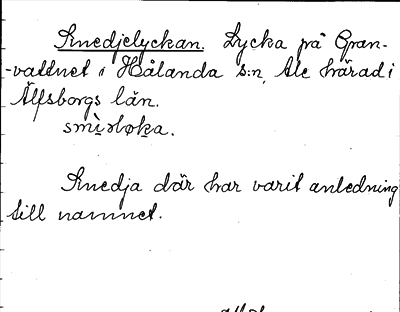 Smedjelyckan. Lycka på Gran-
-vattnet i Hålanda s:n, Ale härad i
Älfsborgs län.
Smedja där har varit anledning
till namnet.